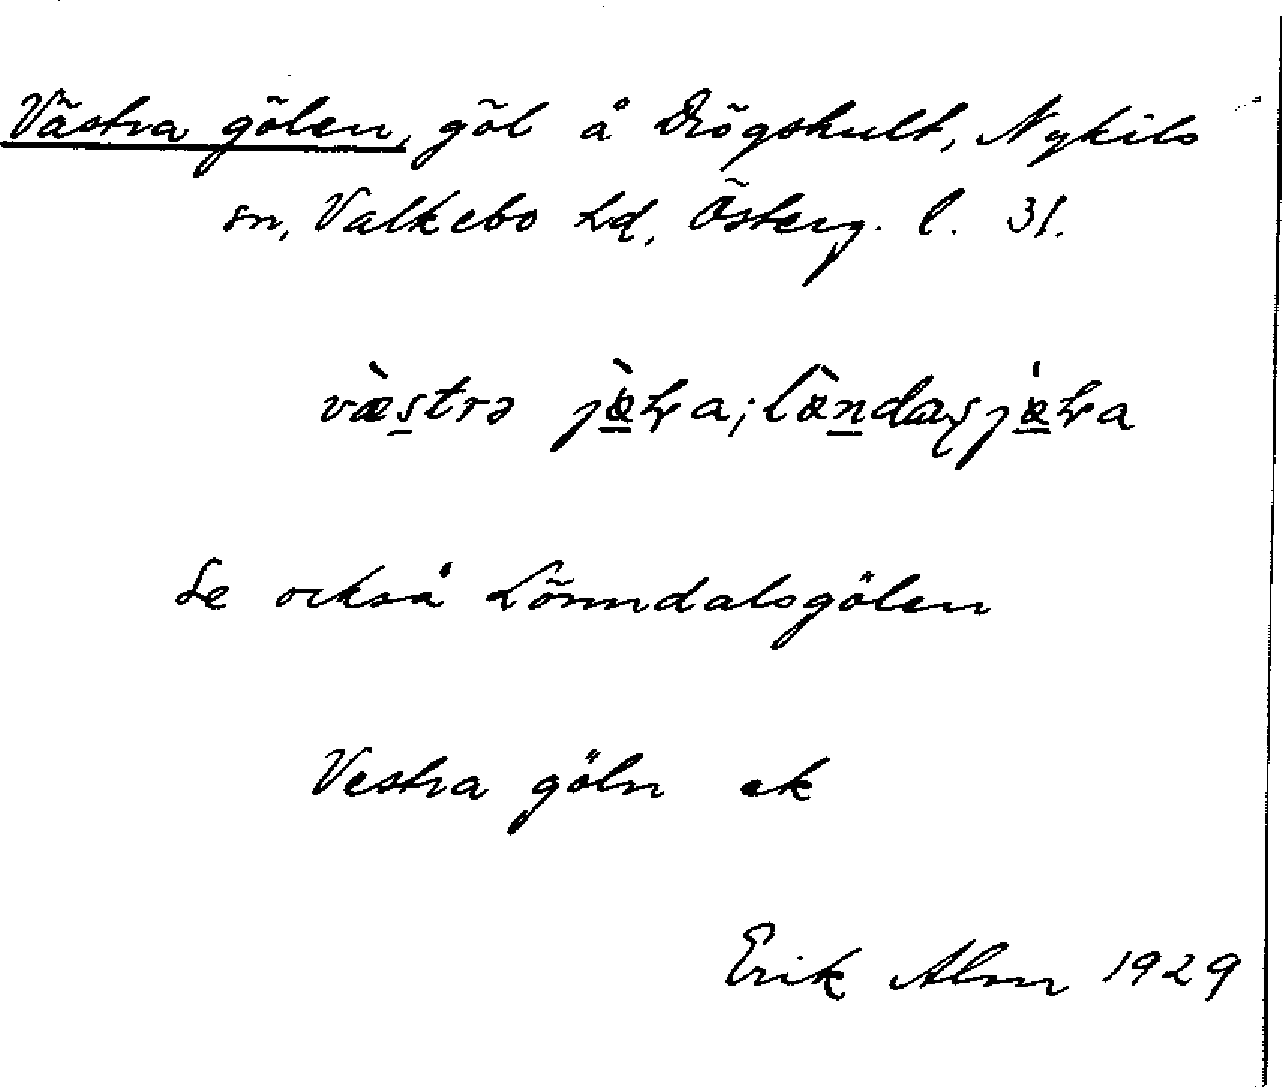 Västra gölen, göl å Drögshult, Nykils
sn, Valkebo hd, Österg. l. 31.
Se också Lönndalsgölen
Vestra göln ek
Erik Alm 1929